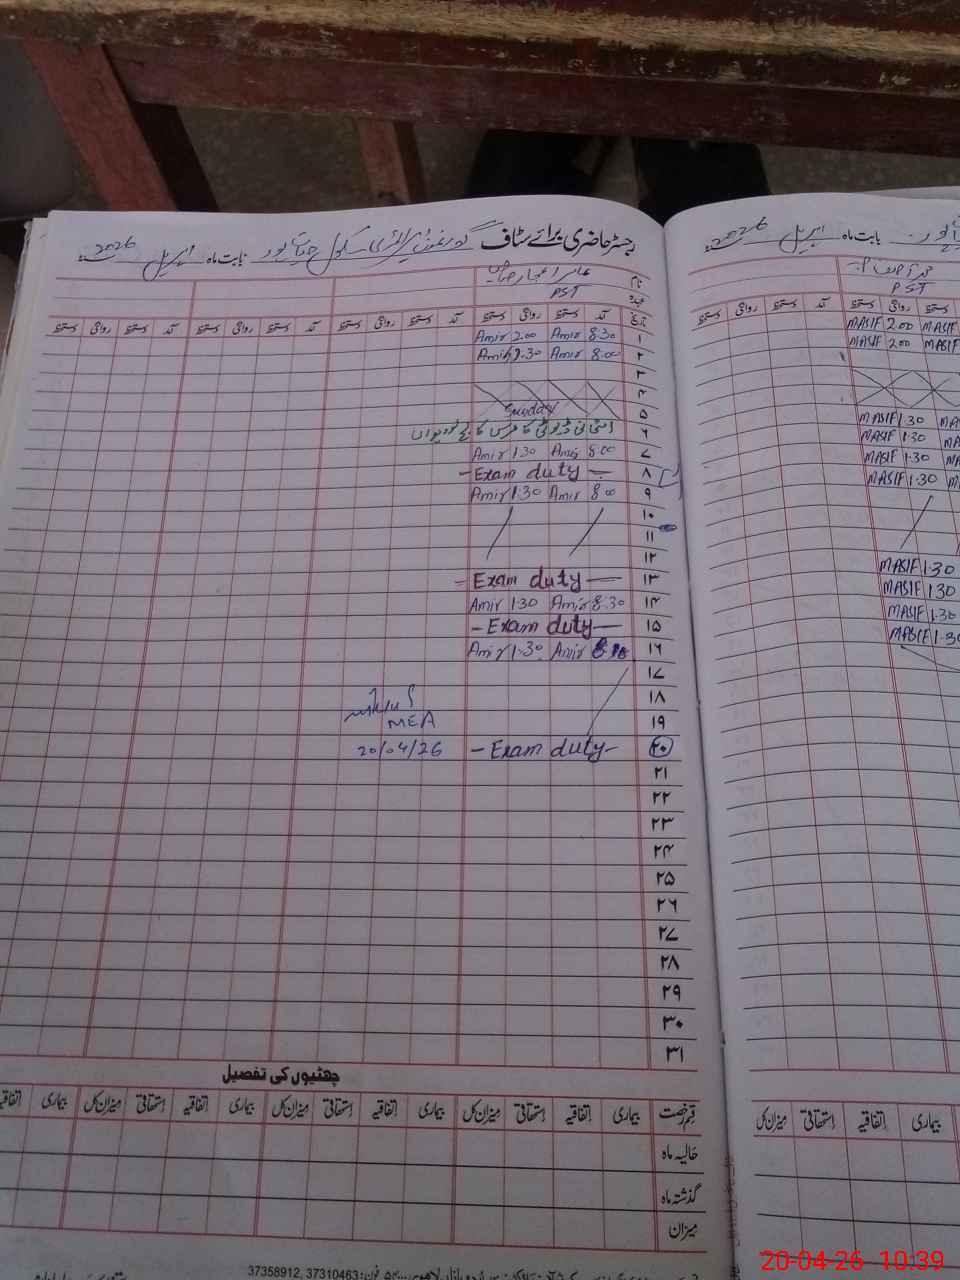 رجسٹر حاضری برائے سٹاف گورنمنٹ پرائمری سکول بابت ماہ اپریل 2026ء
نام عامر اعجاز
عہدہ PST
تاریخ آمد دستخط روانگی دستخط آمد دستخط روانگی دستخط آمد دستخط روانگی دستخط
۱ 8:30 Amir 2:00 Amir
۲ 8:00 Amir 1:30 Amir
۳
۴
۵ Sunday
۶ امتحانی ڈیوٹی
۷ 8:00 Amir 1:30 Amir
۸ - Exam duty -
۹ 8:00 Amir 1:30 Amir
۱۰
۱۱
۱۲
۱۳ - Exam duty -
۱۴ 8:30 Amir 1:30 Amir
۱۵ - Exam duty -
۱۶ Amir 1:30 Amir
۱۷
۱۸
۱۹ MEA
۲۰ - Exam duty - 20/04/26
۲۱
۲۲
۲۳
۲۴
۲۵
۲۶
۲۷
۲۸
۲۹
۳۰
۳۱
چھٹیوں کی تفصیل
قسم رخصت بیماری اتفاقیہ استحقاقی میزان کل بیماری اتفاقیہ استحقاقی میزان کل بیماری اتفاقیہ استحقاقی میزان کل بیماری اتفاقیہ
حالیہ ماہ
گذشتہ ماہ
میزان
37358912, 37310463
بابت ماہ اپریل 2026ء
PST
روانگی دستخط آمد دستخط روانگی دستخط
MASIF 2:00 MASIF
MASIF 2:00 MASIF
MASIF 1:30
MASIF 1:30
MASIF 1:30
MASIF 1:30
MASIF 1:30
MASIF 1:30
MASIF 1:30
MASIF 1:30
بیماری اتفاقیہ استحقاقی میزان کل
20-04-26 10:39